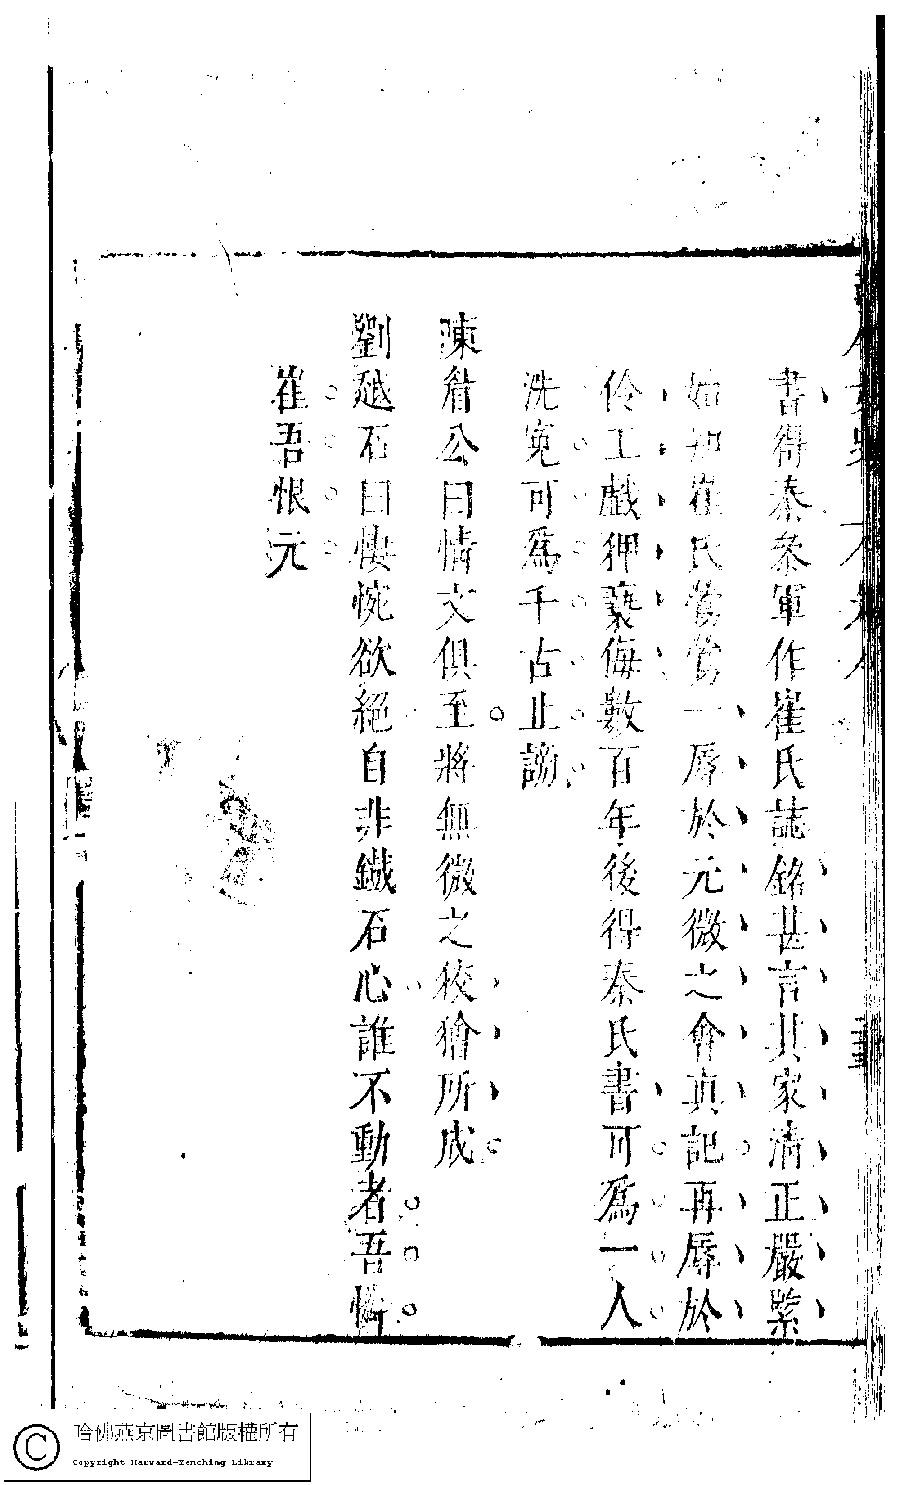 書得秦叅軍作崔氏誌銘甚言其家淸正嚴絜
始知崔氏鶯鶯一辱於元微之會真記再辱於
伶工戲狎褻侮數百年後得秦氏書可爲一人
洗寃可爲千古止謗
陳眉公曰情文俱至將無微之狡獪所成
劉越石曰悽惋欲絕自非鐵石心誰不動者吾憐
崔吾恨元
哈佛燕京圖書館版權所有
Copyright Harvard-Yenching Library